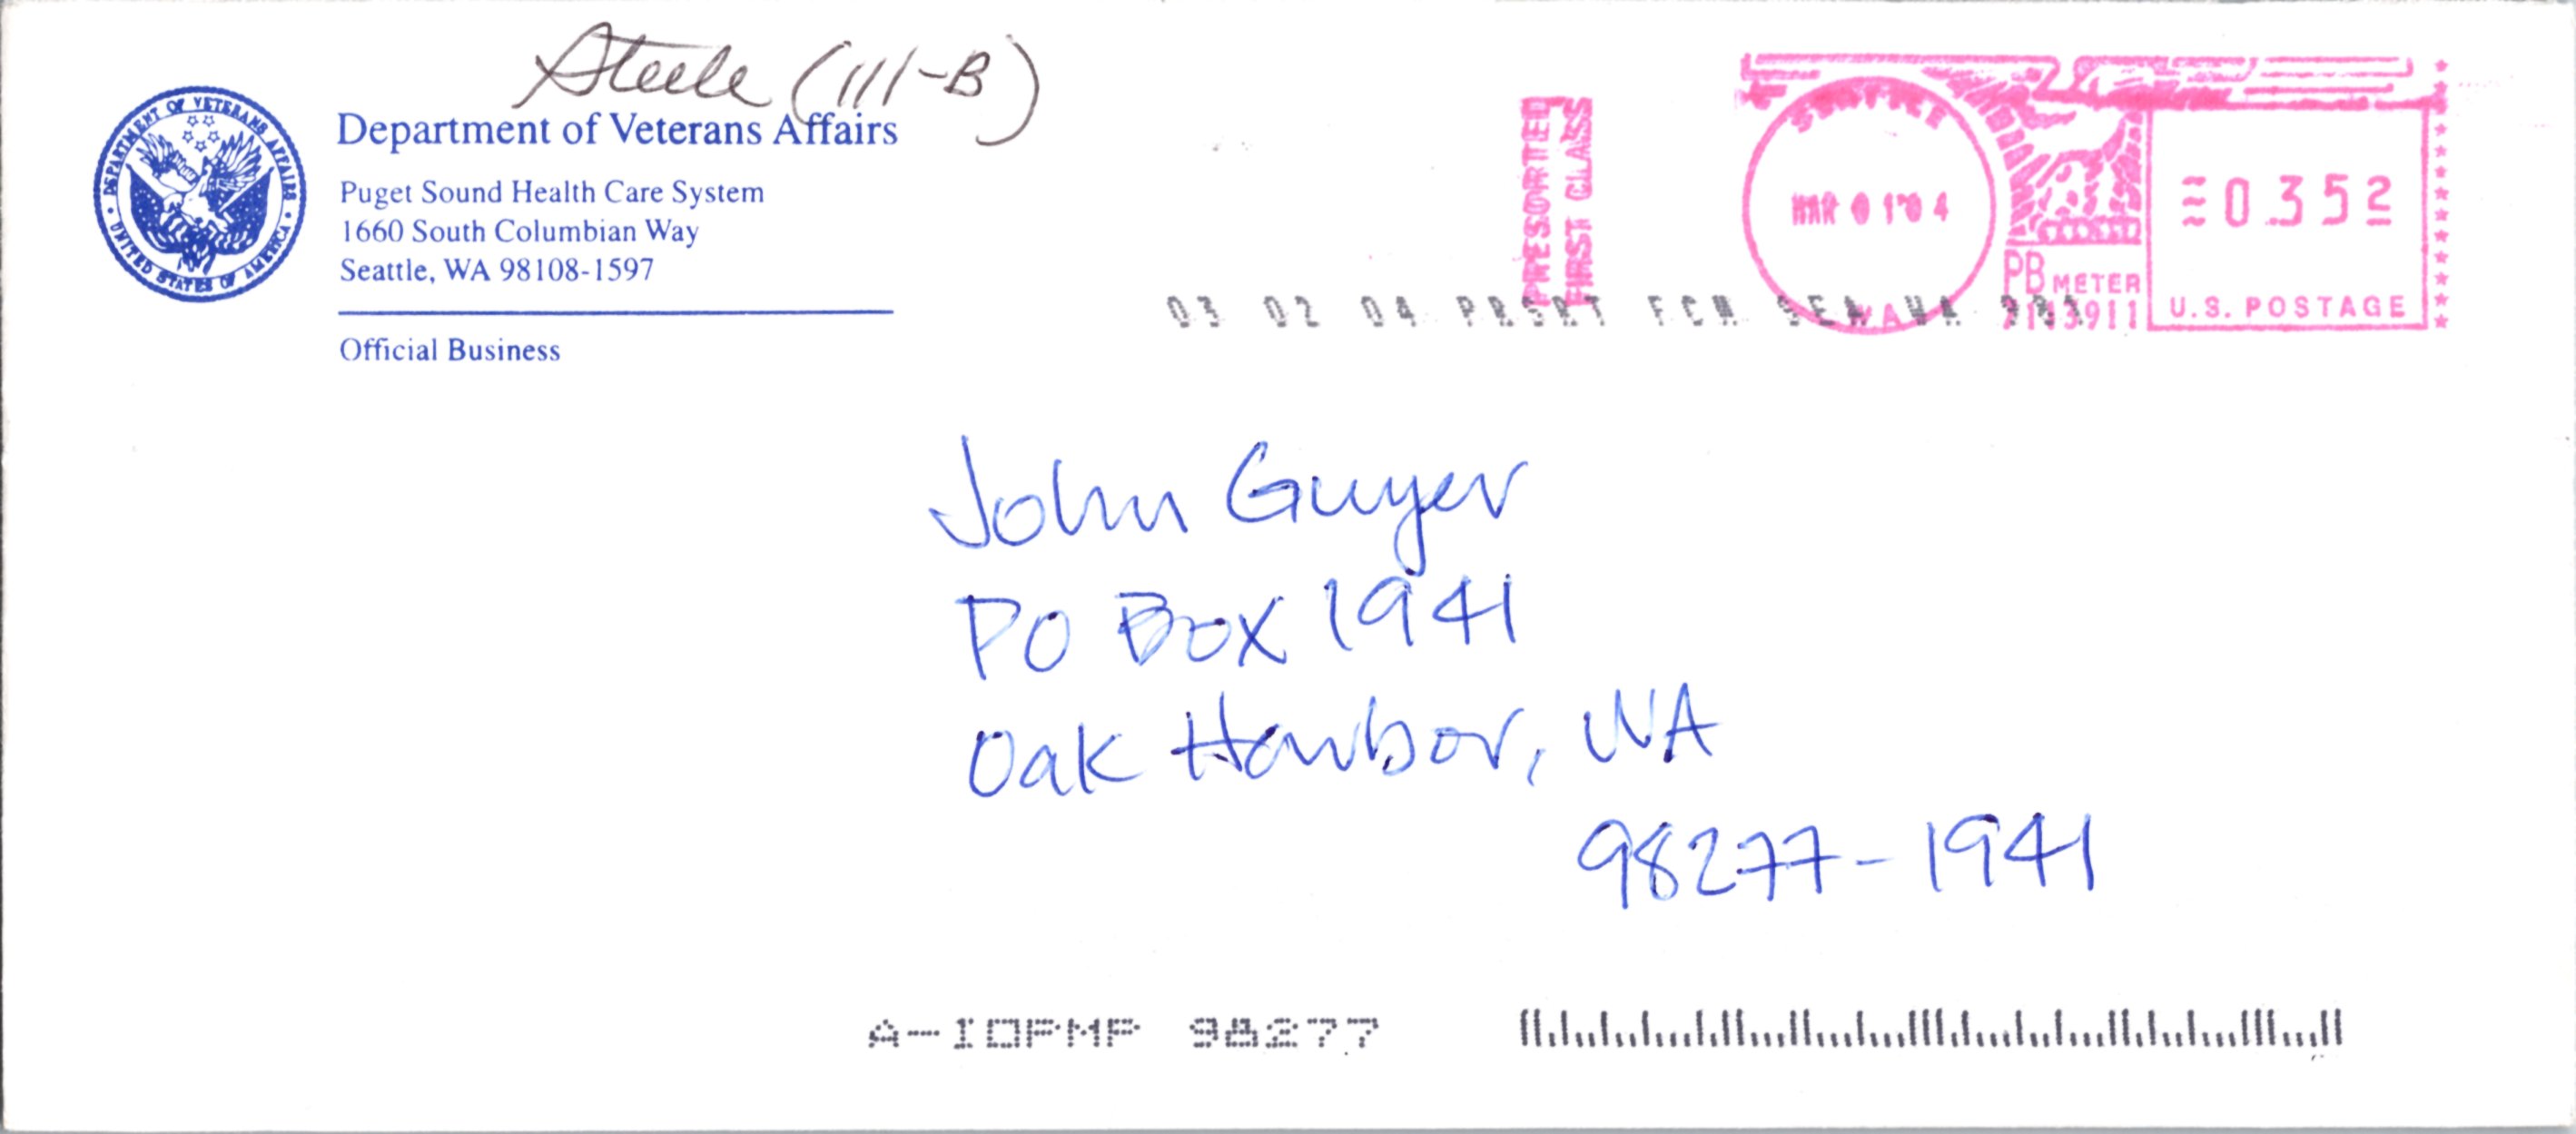 Steele (111-B)
DEPARTMENT OF VETERANS AFFAIRS
UNITED STATES OF AMERICA
Department of Veterans Affairs
Puget Sound Health Care System
1660 South Columbian Way
Seattle, WA 98108-1597
Official Business
PRESORTED
FIRST CLASS
SEATTLE
MAR 01'04
WA
PB METER
0.352
U.S. POSTAGE
03 02 04 PRSRT FCM SEA WA 981
John Guyer
PO Box 1941
Oak Harbor, WA
98277-1941
A-IOPMP 98277